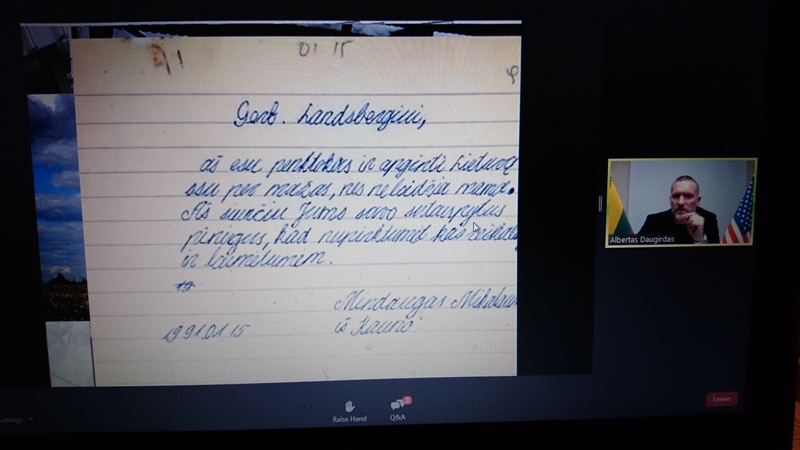 01 15
Gerb. Landsbergiui,
aš esu penktokas ir apginti Lietuvą
esu per mažas, nes neleidžia mama.
Aš siunčiu Jums savo sutaupytus
pinigus, kad nupirktumėt kas reikia
ir laimėtumėm.
Mindaugas
1991.01.15 iš Kauno
Albertas Daugirdas
Raise Hand
Q&A
Leave